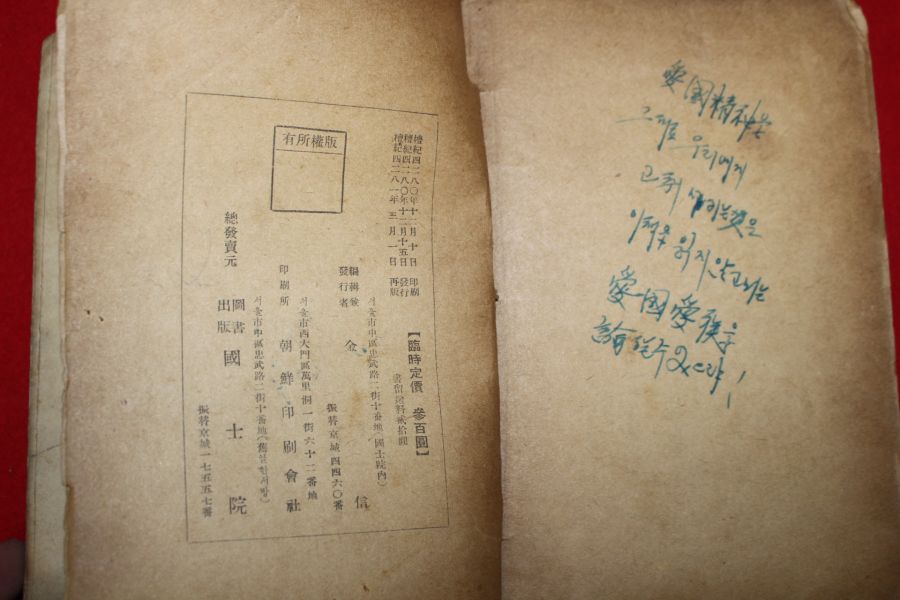 檀紀四二八〇年十二月十日 印刷
檀紀四二八〇年十二月十五日 發行
檀紀四二八一年三月一日 再版
【臨時定價 參百圓】
書留送料貳拾圓
서울市中區忠武路二街十番地(國士院內)
編輯兼
發行者 金 信
振替京城四四六〇番
서울市西大門區萬里洞一街六十二番地
印刷所 朝鮮印刷會社
서울市中區忠武路二街十番地(舊설한서방)
總發賣元 圖書出版 國士院
振替京城一七五五七番
版權所有
愛國精神은
그대로 우리에게
고취 시키는것은
이책을 읽지않고서는
愛國愛族을
論할수 없으랴!